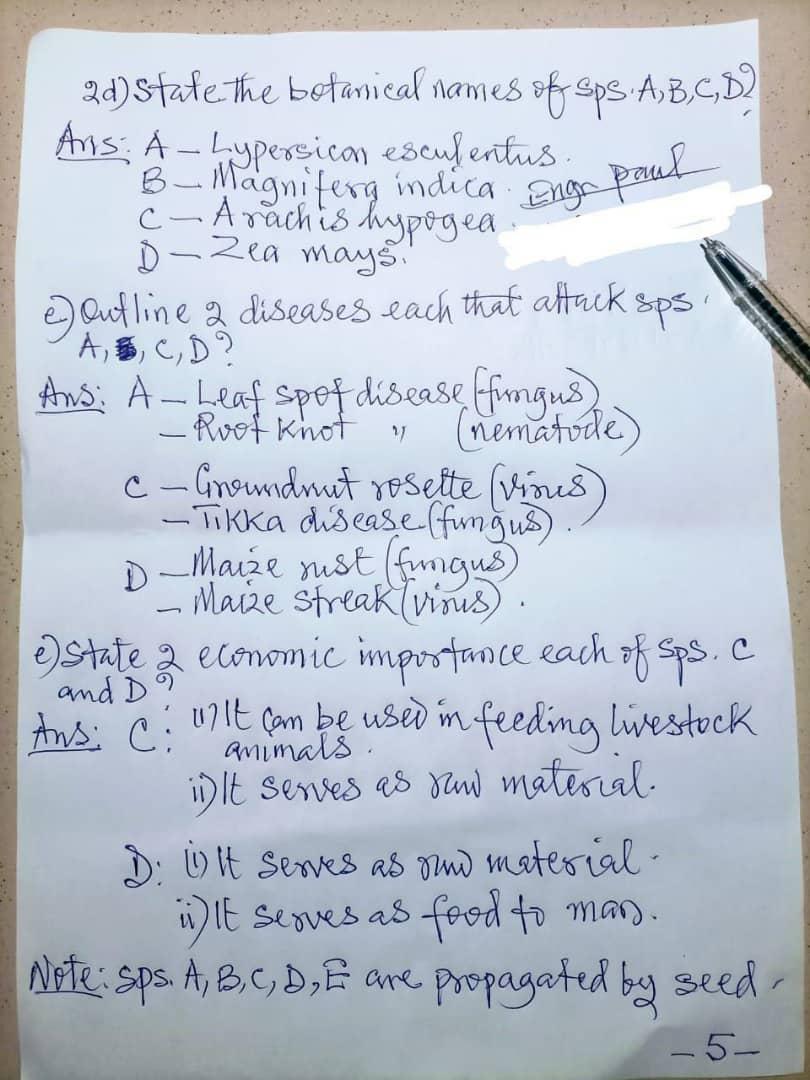 2d) State the botanical names of sps. A, B, C, D?
Ans: A – Lypersicon esculentus.
B – Magnifera indica. Engr Paul
C – Arachis hypogea.
D – Zea mays.
e) Outline 2 diseases each that attack sps.
A, C, D?
Ans: A – Leaf spot disease (fungus)
– Root knot " (nematode)
C – Groundnut rosette (virus)
– Tikka disease (fungus).
D – Maize rust (fungus)
– Maize streak (virus).
e) State 2 economic importance each of sps. C
and D?
Ans: C: (i) It can be used in feeding livestock
animals.
ii) It serves as raw material.
D: (i) It serves as raw material.
ii) It serves as food to man.
Note: sps. A, B, C, D, E are propagated by seed.
– 5 –